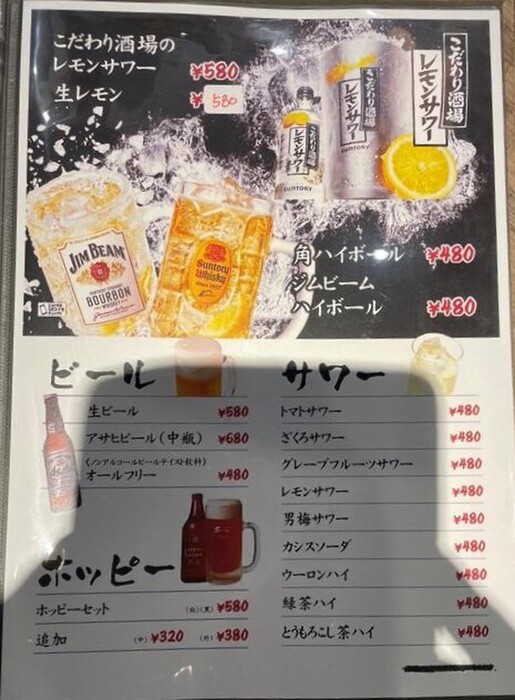 こだわり酒場の
レモンサワー ¥580
生レモン ¥580
こだわり酒場
レモンサワー
こだわり酒場
レモンサワー
こだわり酒場
レモンサワー
SUNTORY
SUNTORY
JIM BEAM
BOURBON
Suntory
Whisky
角ハイボール ¥480
ジムビーム
ハイボール ¥480
ビール
生ビール ¥580
アサヒビール(中瓶) ¥680
(ノンアルコールビールテイスト飲料)
オールフリー ¥480
ホッピー
ホッピーセット (白)(黒) ¥580
追加 (中) ¥320 (外) ¥380
サワー
トマトサワー ¥480
ざくろサワー ¥480
グレープフルーツサワー ¥480
レモンサワー ¥480
男梅サワー ¥480
カシスソーダ ¥480
ウーロンハイ ¥480
緑茶ハイ ¥480
とうもろこし茶ハイ ¥480